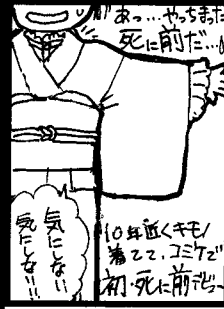 あっ…やっちまった
死に前だ…
気にしない
気にしない!!
10年近くキモノ
着てて、コミケで
初・死に前デビュー